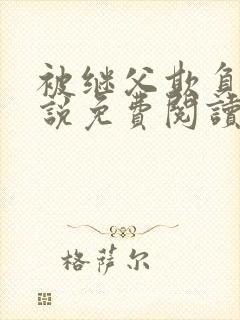 被继父欺负
說免費閱讀
格萨尔